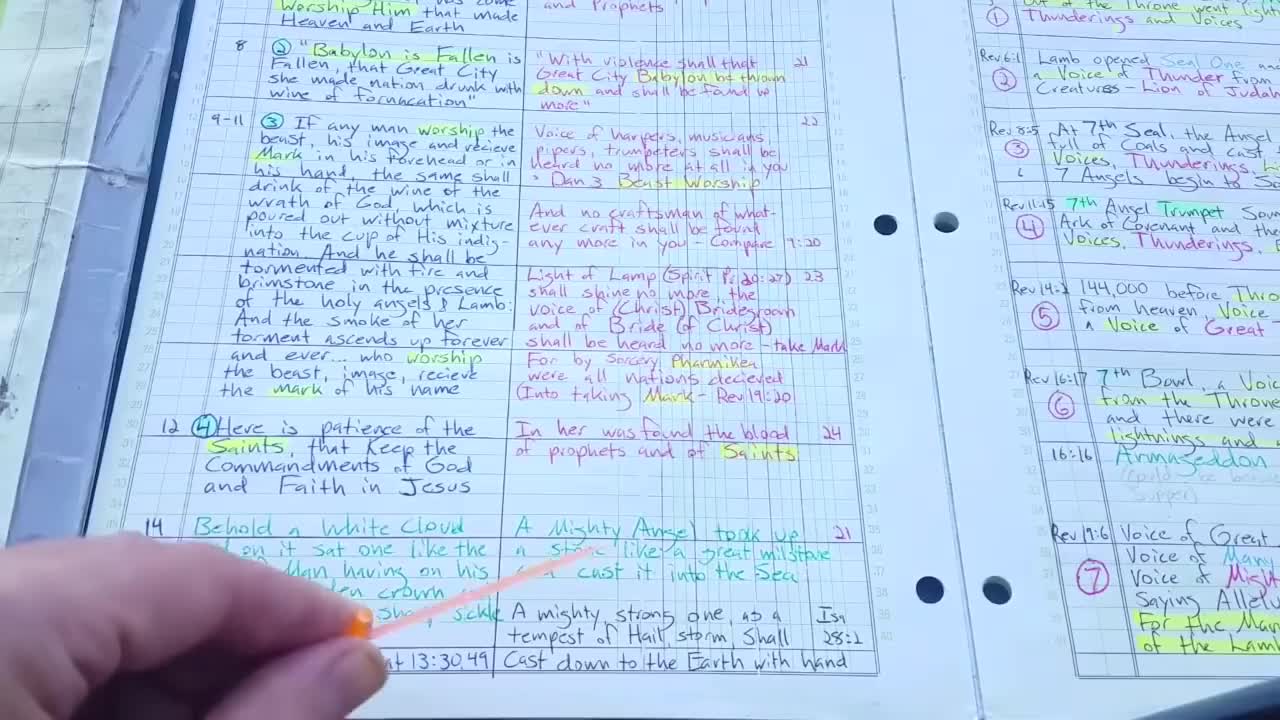 Worship Him that made
Heaven and Earth
and Prophets
8
② "Babylon is Fallen is
Fallen, that Great City
she made nation drunk with
wine of fornacation"
"With violence shall that
Great City Babylon be thrown
down and shall be found no
more"
21
9-11
③ If any man worship the
beast, his image and recieve
Mark in his forehead or in
his hand, the same shall
drink of the wine of the
wrath of God, which is
poured out without mixture
into the cup of His indig-
nation. And he shall be
tormented with fire and
brimstone in the presence
of the holy angels & Lamb:
And the smoke of her
torment ascends up forever
and ever... who worship
the beast, image, recieve
the mark of his name
22
Voice of harpers, musicians,
pipers, trumpeters shall be
heard no more at all in you
* Dan 3 Beast Worship
And no craftsman of what-
ever craft shall be found
any more in you - Compare
Light of Lamp (Spirit Pr 20:27) 23
shall shine no more, the
voice of (Christ) Bridegroom
and of Bride (of Christ)
shall be heard no more - take Mark
For by Sorcery Pharmikea
were all nations decieved
(Into taking Mark - Rev 19:20
12
④ Here is patience of the
Saints, that Keep the
Commandments of God
and Faith in Jesus
In her was found the blood 24
of prophets and of Saints
14
Behold a White Cloud
on it sat one like the
Man having on his
crown
sickle
13:30,49
A Mighty Angel took up 21
a stone like a great milstone
cast it into the Sea
A mighty, strong one, as a Isa
tempest of Hail, storm, Shall 28:2
Cast down to the Earth with hand
Out of the Throne went
① Thunderings and Voices
Rev 6:1 Lamb opened Seal One and
② a Voice of Thunder from
Creatures - Lion of Judah
Rev 8:5 At 7th Seal, the Angel
③ full of Coals and cast
Voices, Thunderings,
6 7 Angels begin to
Rev 11:15 7th Angel Trumpet
④ Ark of Covenant and the
Voices, Thunderings,
Rev 14:2 144,000 before
⑤ from heaven, Voice
a Voice of Great
Rev 16:17 7th Bowl, a
⑥ from the Throne
and there were
lightnings and
16:16 Armageddon
Supper)
Rev 19:6 Voice of Great
Voice of Many
⑦ Voice of
Saying
For the
of the Lamb